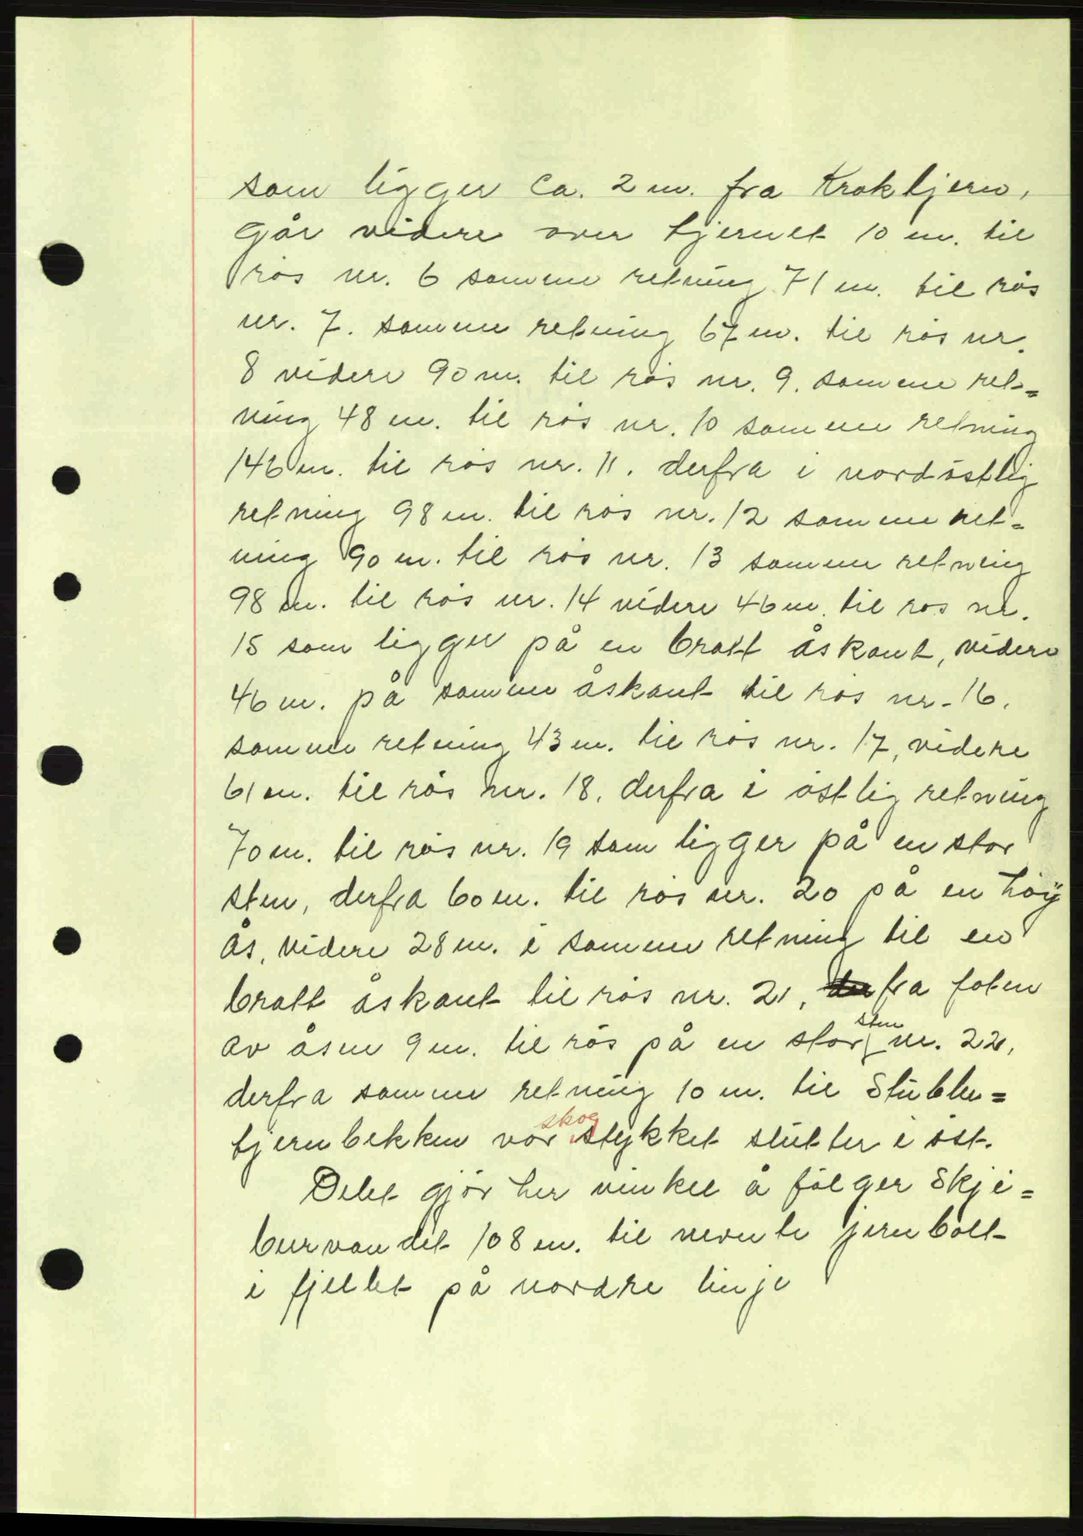 som ligger ca. 2 m. fra Kroktjern,
går videre over tjernet 10 m. til
rös nr. 6 samme retning 71 m. til rös
nr. 7. samme retning 67 m. til rös nr.
8 videre 90 m. til rös nr. 9. samme ret=
ning 48 m. til rös nr. 10 samme retning
146 m. til rös nr. 11. derfra i nordöstlig
retning 98 m. til rös nr. 12 samme ret=
ning 90 m. til rös nr. 13 samme retning
98 m. til rös nr. 14 videre 46 m. til rös nr.
15 som ligger på en bratt åskant, videre
46 m. på samme åskant til rös nr. 16.
samme retning 43 m. til rös nr. 17, videre
61 m. til rös nr. 18. derfra i östlig retning
70 m. til rös nr. 19 som ligger på en stor
sten, derfra 60 m. til rös nr. 20 på en höy
ås, videre 28 m. i samme retning til en
bratt åskant til rös nr. 21, fra foten
av åsen 9 m. til rös på en stor sten nr. 22,
derfra samme retning 10 m. til Stubben=
tjernbekken vor skog stykket slutter i öst.
Delet gjör her vinkel å fölger Skje=
burvandet 108 m. til nevnte jernbolt
i fjellet på nordre linje